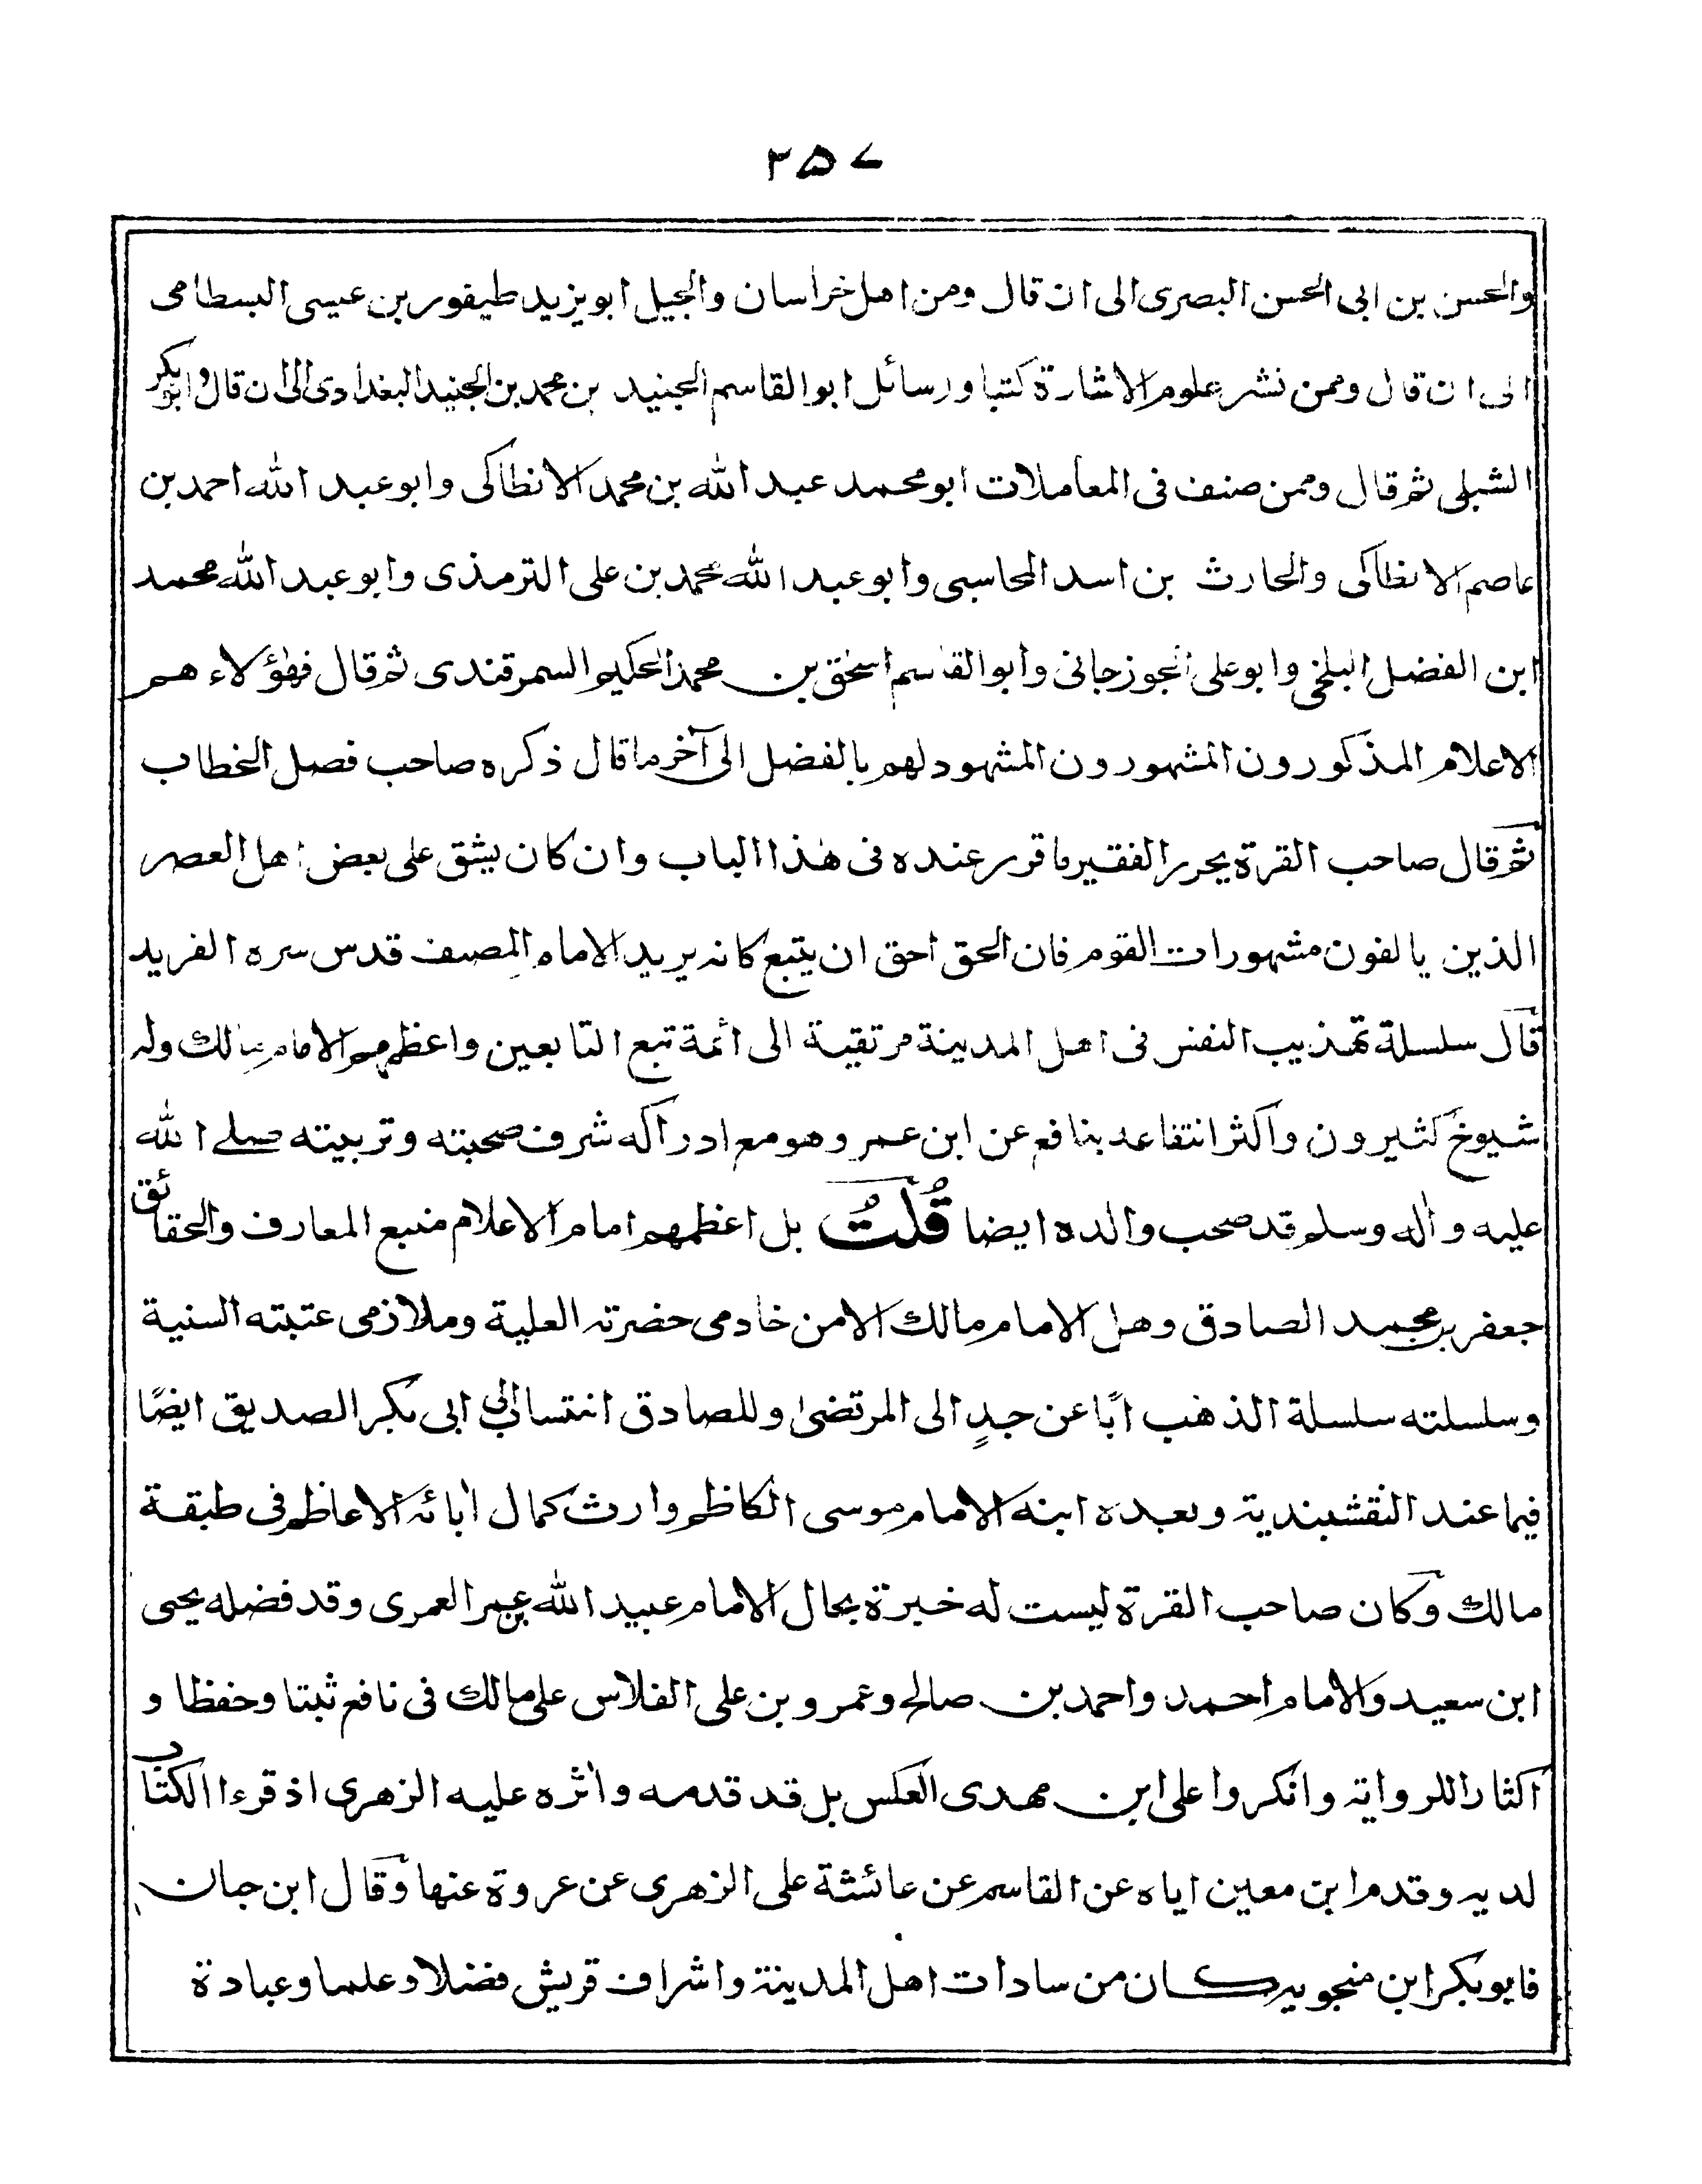 ۲۵۷
والحسن بن ابى الحسن البصرى الى ان قال ومن اهل خراسان والجيل ابو يزيد طيفور بن عيسى البسطامى
الى ان قال وممن نشر علوم الاشارة كتبا ورسائل ابو القاسم الجنيد بن محمد بن الجنيد البغدادى الى ان قال وابو بكر
الشبلى ثم قال وممن صنف فى المعاملات ابو محمد عبد الله بن محمد الانطاكى وابو عبد الله احمد بن
عاصم الانطاكى والحارث بن اسد المحاسبى وابو عبد الله محمد بن على الترمذى وابو عبد الله محمد
ابن الفضل البلخى وابو على الجوزجانى وابو القاسم اسحٰق بن محمد الحكيم السمرقندى ثم قال فهٰؤلاء هم
الاعلام المذكورون المشهورون المشهود لهم بالفضل الى آخر ما قال ذكره صاحب فصل الخطاب
ثم قال صاحب القرة يحرر الفقير ما قرر عنده فى هٰذا الباب وان كان يشق على بعض اهل العصر
الذين يالفون مشهورات القوم فان الحق احق ان يتبع كانه يريد الامام المصنف قدس سره الفريد
قال سلسلة تهذيب النفس فى اهل المدينة مرتقية الى ائمة تبع التابعين واعظمهم الامام مالك وله
شيوخ كثيرون واكثر انتفاعه بنافع عن ابن عمر وهو مع ادراكه شرف صحبته وتربيته صلے الله
عليه وآله وسلم قد صحب والده ايضا قُلتُ بل اعظمهم امام الاعلام منبع المعارف والحقائق
جعفر بن محمد الصادق وهل الامام مالك الا من خادمى حضرته العلية وملازمى عتبته السنية
وسلسلته سلسلة الذهب ابًا عن جدٍ الى المرتضىٰ وللصادق انتساب الى ابى بكر الصديق ايضًا
فيما عند النقشبندية وبعده ابنه الامام موسى الكاظم وارث كمال اٰبائه الاعاظم فى طبقة
مالك وكان صاحب القرة ليست له خبرة بحال الامام عبيد الله بن عمر العمرى وقد فضله يحى
ابن سعيد والامام احمد واحمد بن صالح وعمرو بن على الفلاس على مالك فى نافع ثبتا وحفظا و
اكثارا للرواية وانكروا على ابن مهدى العكس بل قد قدمه واٰثره عليه الزهرى اذ قرءا الكتاب
لديه وقدم ابن معين اياه عن القاسم عن عائشة على الزهرى عن عروة عنها وقال ابن حبان
فابو بكر ابن منجويه كان من سادات اهل المدينة واشراف قريش فضلا وعلما وعبادة